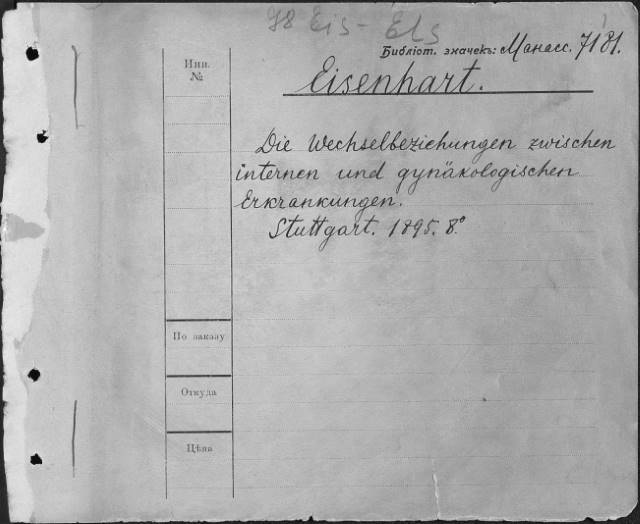 78 Eis - Els
Библіот. значекъ: Манасс. 7181.
Eisenhart.
Инв.
№
Die Wechselbeziehungen zwischen
internen und gynäkologischen
Erkrankungen.
Stuttgart. 1895. 8°
По заказу
Откуда
Цѣна